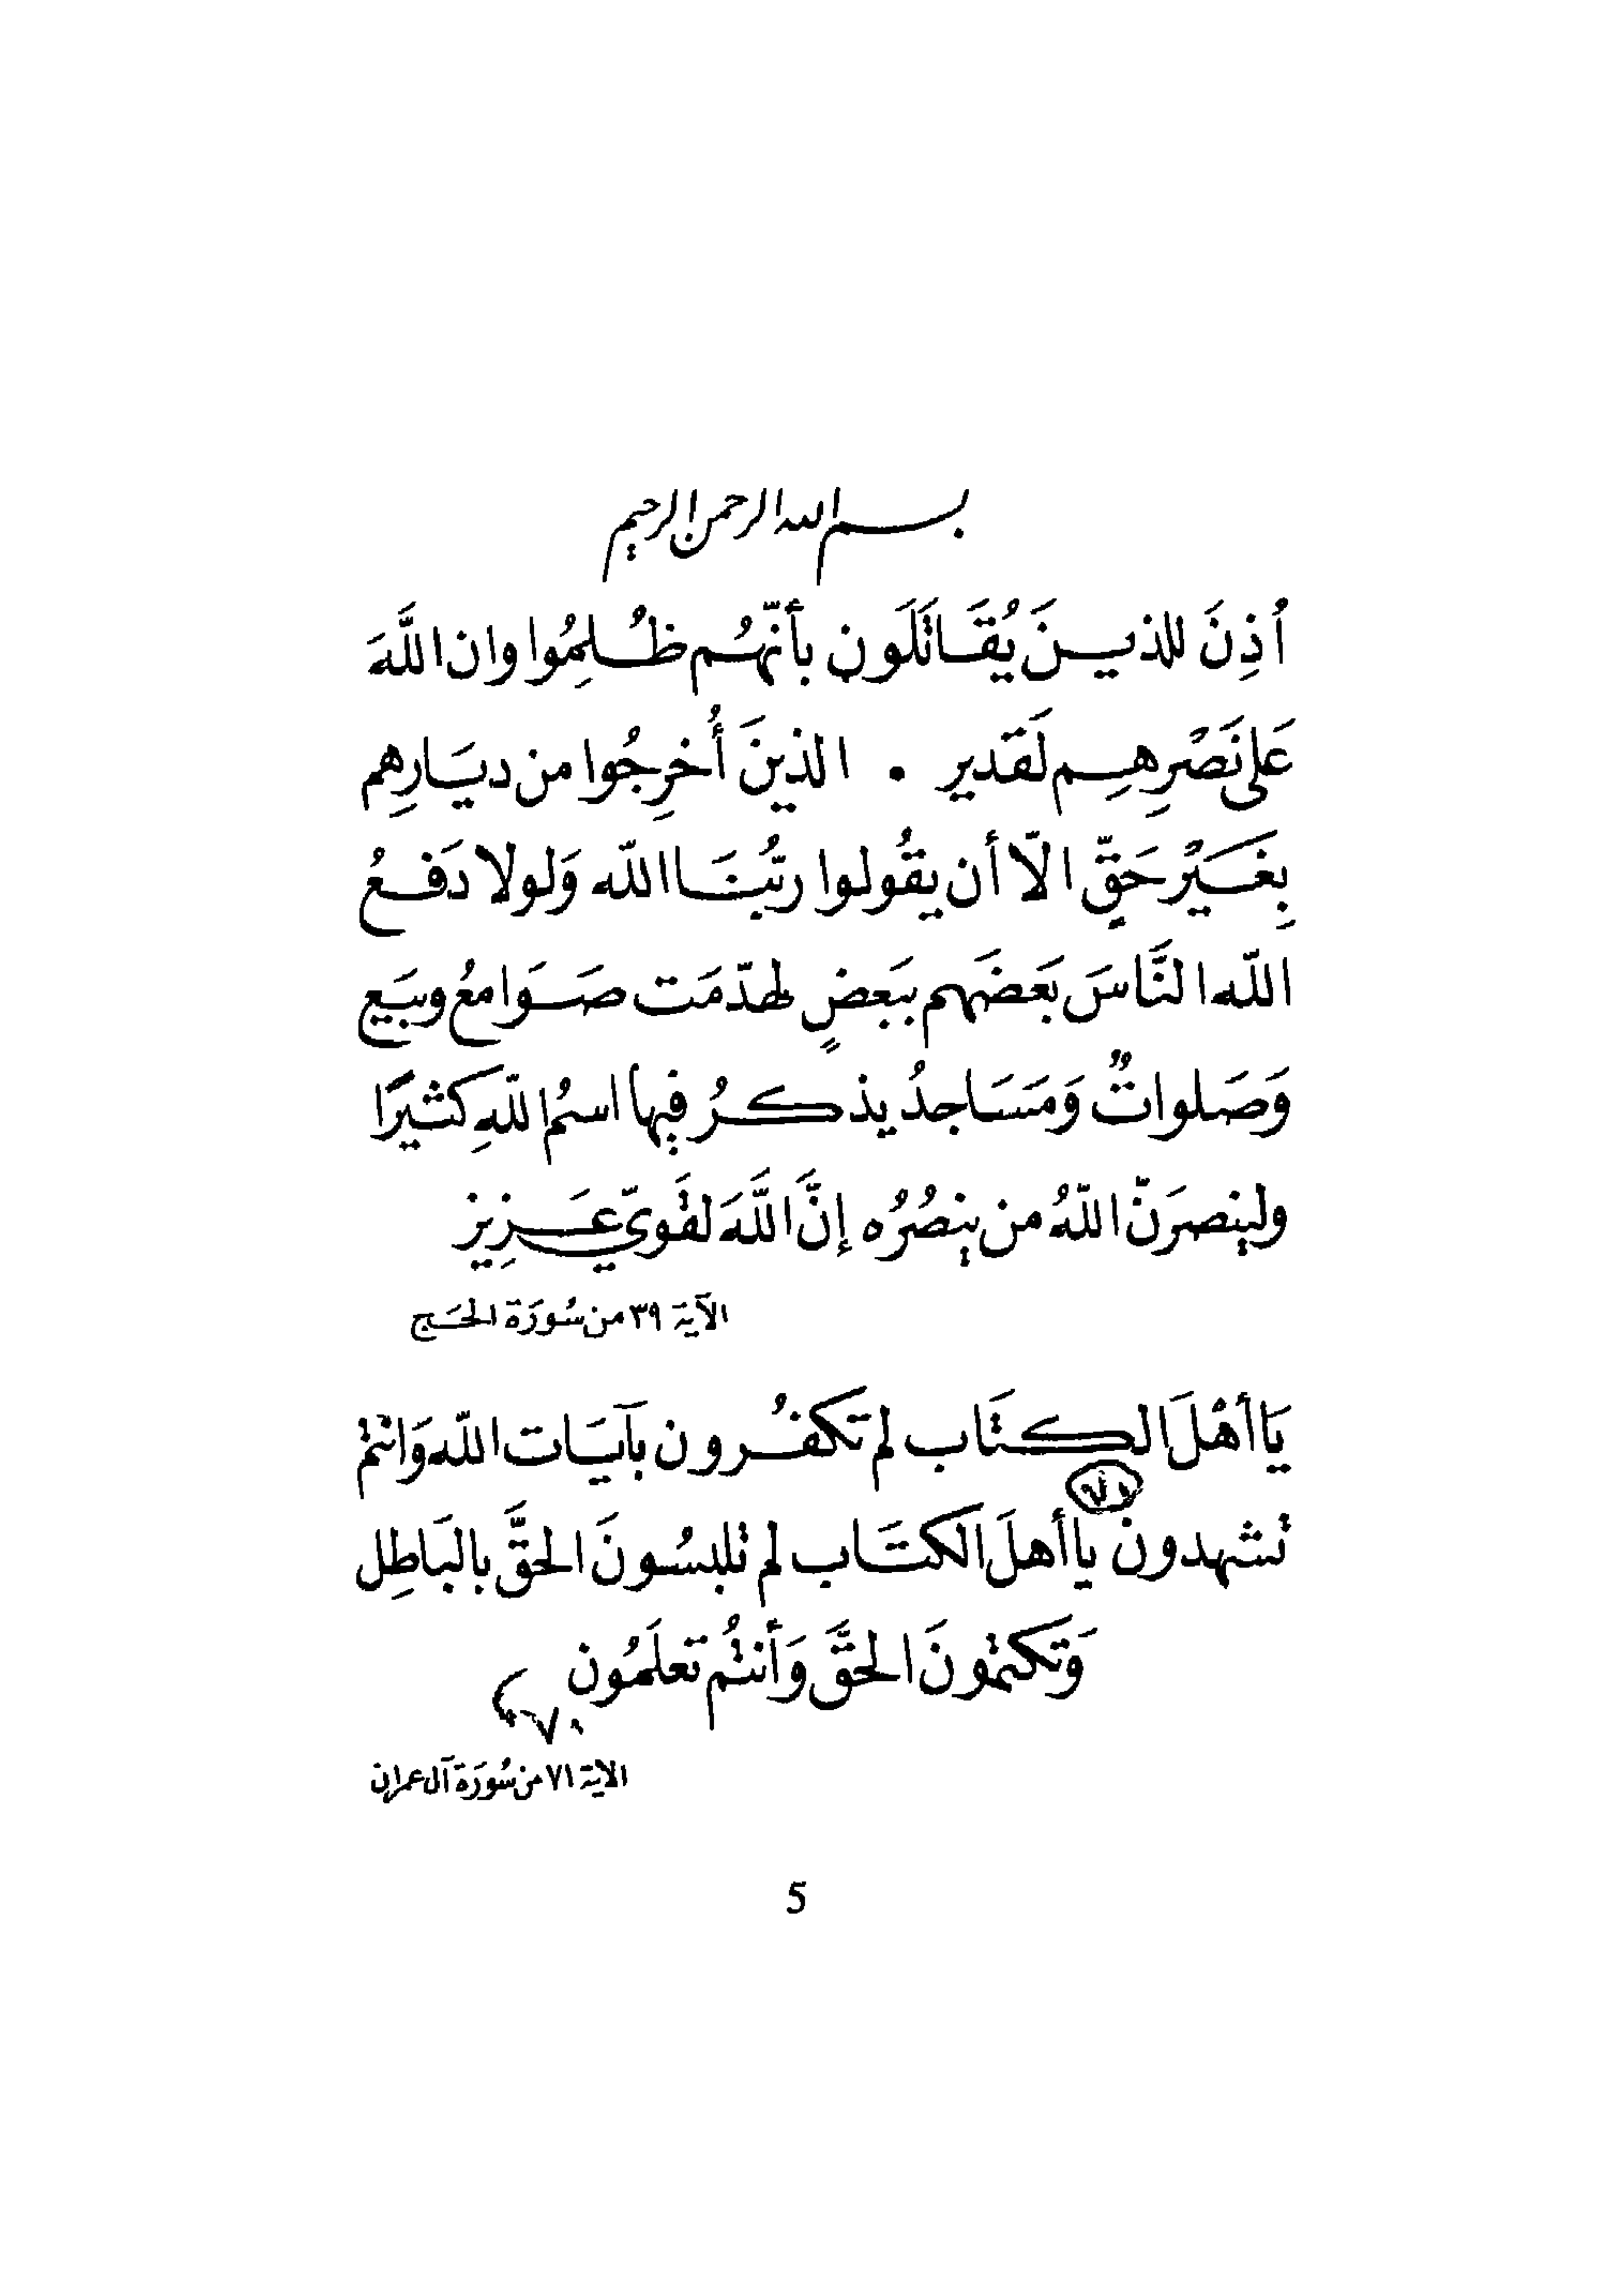 بسم الله الرحمن الرحيم
أُذِنَ للذيـنَ يُقَـاتَلَون بأنّهُـم ظُـلِمُوا وان اللَّهَ
عَلى نَصْرِهِـم لَقَدير . الذينَ أُخرِجُوا من ديـَارِهِم
بِغَـيْر حَقّ الّا أن يقُولوا ربُّـنَـا اللّه وَلولا دَفـعُ
اللّه النَّاسَ بَعَضَهم ببَعضٍ لهدّمَت صَـوَامعُ وبيَع
وَصَلواتٌ وَمَسَاجدُ يذكـرُ فيها اسمُ اللّهِ كثيرًا
ولينصرَنّ اللّهُ من ينصُرُه إنَّ اللَّهَ لقَويّ عَـزِيز
الآيَة ٣٩ من سُورَة الحَـج
يَا أهْلَ الكـتَاب لم تكفُـرون بآيَـات اللّه وَانْتمْ
تشهدون ياأهلَ الكتَـاب لم تلبسُونَ الحقَّ بالبَاطِل
وَتكتمونَ الحقَّ وَأنتُم تعلَمُون
الآية ٧١ من سُورَة آل عمران
5